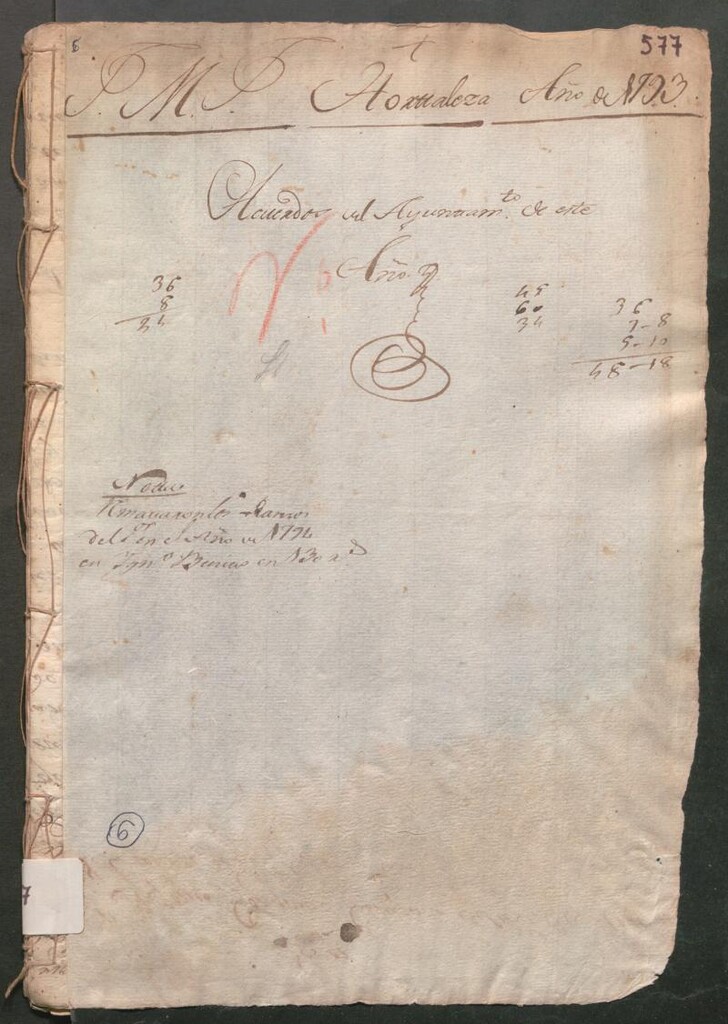 577
+
J. M. J. Hortaleza Año de 1793.
Acuerdos del Ayuntam.to de este
Año
36
8
45
60
34
36
7-8
5-10
48-18
Nota
Ramos
del en el Año de 1794
en Ign.o en 130 r.s
6
7